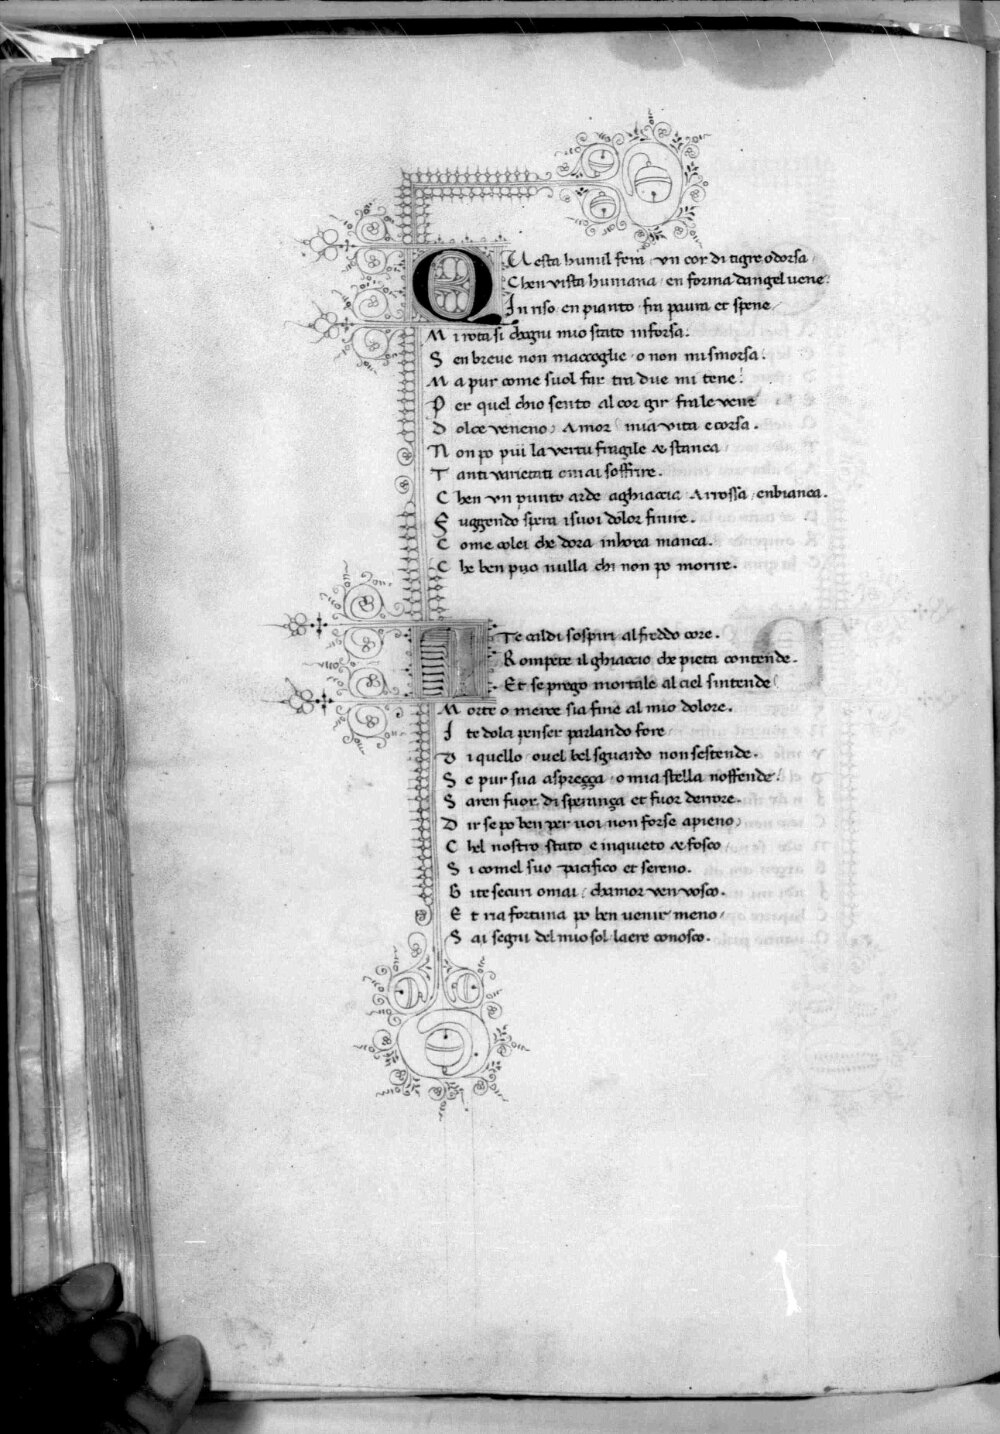 QUesta humil fera / un cor di tigre o dorsa /
Chen vista humana / en forma dangel vene:
In riso en pianto / fra paura et spene /
Mi rota si chogni mio stato inforsa.
Sen breve non maccoglie / o non mi smorsa:
Ma pur come suol far tra due mi tene:
Per quel chio sento al cor gir fra le vene
Dolce veneno / Amor / mia vita e corsa.
Non po piu la vertu fragile & stanca
Tanti varietati omai soffrire.
Chen un punto arde aghiaccia arrossa / enbianca.
Fuggendo spera i suoi dolor finire.
Come colei che dora inhora manca.
Che ben puo nulla chi non po morire.
ITe caldi sospiri al freddo core.
Rompete il ghiaccio che pieta contende.
Et se prego mortale al ciel sintende:
Morte o merce sia fine al mio dolore.
Ite dolci penser parlando fore
Di quello ovel bel sguardo non sestende.
Se pur sua asprezza / o mia stella noffende:
Saren fuor di speranza et fuor derrore.
Dir se po ben per voi non forse apieno /
Chel nostro stato e inquieto & fosco
Si comel suo pacifico et sereno.
Gite securi omai / chamor ven vosco.
Et ria fortuna po ben venir meno /
Sai segni del mio sol laere conosco.